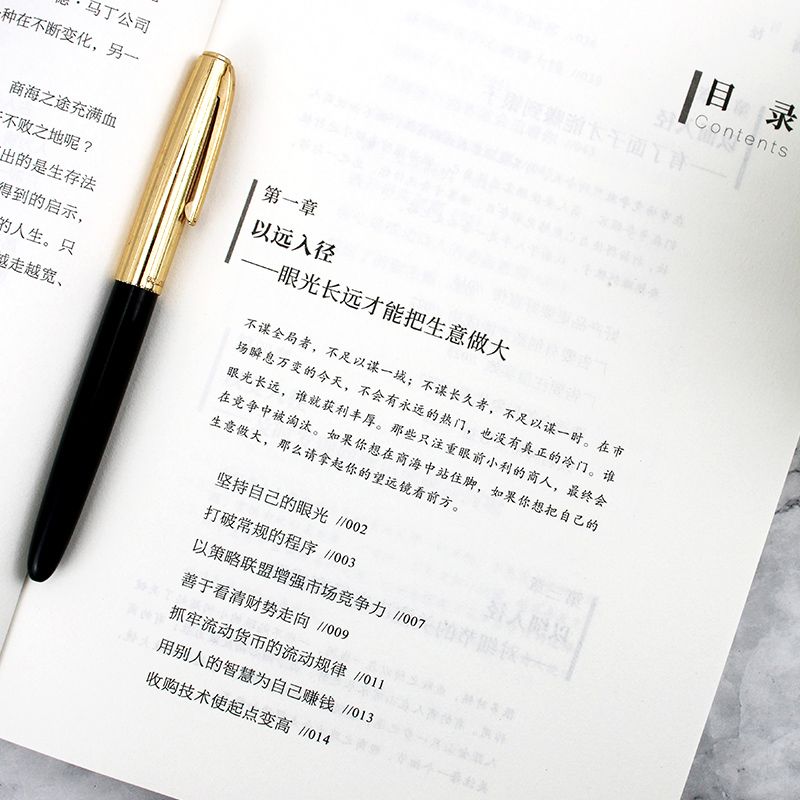 德·马丁公司
种在不断变化，另一
商海之途充满血
不败之地呢？
出的是生存法
得到的启示，
的人生。只
越走越宽、
目 录
Contents
第一章
以远入径
——眼光长远才能把生意做大
不谋全局者，不足以谋一域；不谋长久者，不足以谋一时。在市
场瞬息万变的今天，不会有永远的热门，也没有真正的冷门。谁
眼光长远，谁就获利丰厚。那些只注重眼前小利的商人，最终会
在竞争中被淘汰。如果你想在商海中站住脚，如果你想把自己的
生意做大，那么请拿起你的望远镜看前方。
坚持自己的眼光 //002
打破常规的程序 //003
以策略联盟增强市场竞争力 //007
善于看清财势走向 //009
抓牢流动货币的流动规律 //011
用别人的智慧为自己赚钱 //013
收购技术使起点变高 //014